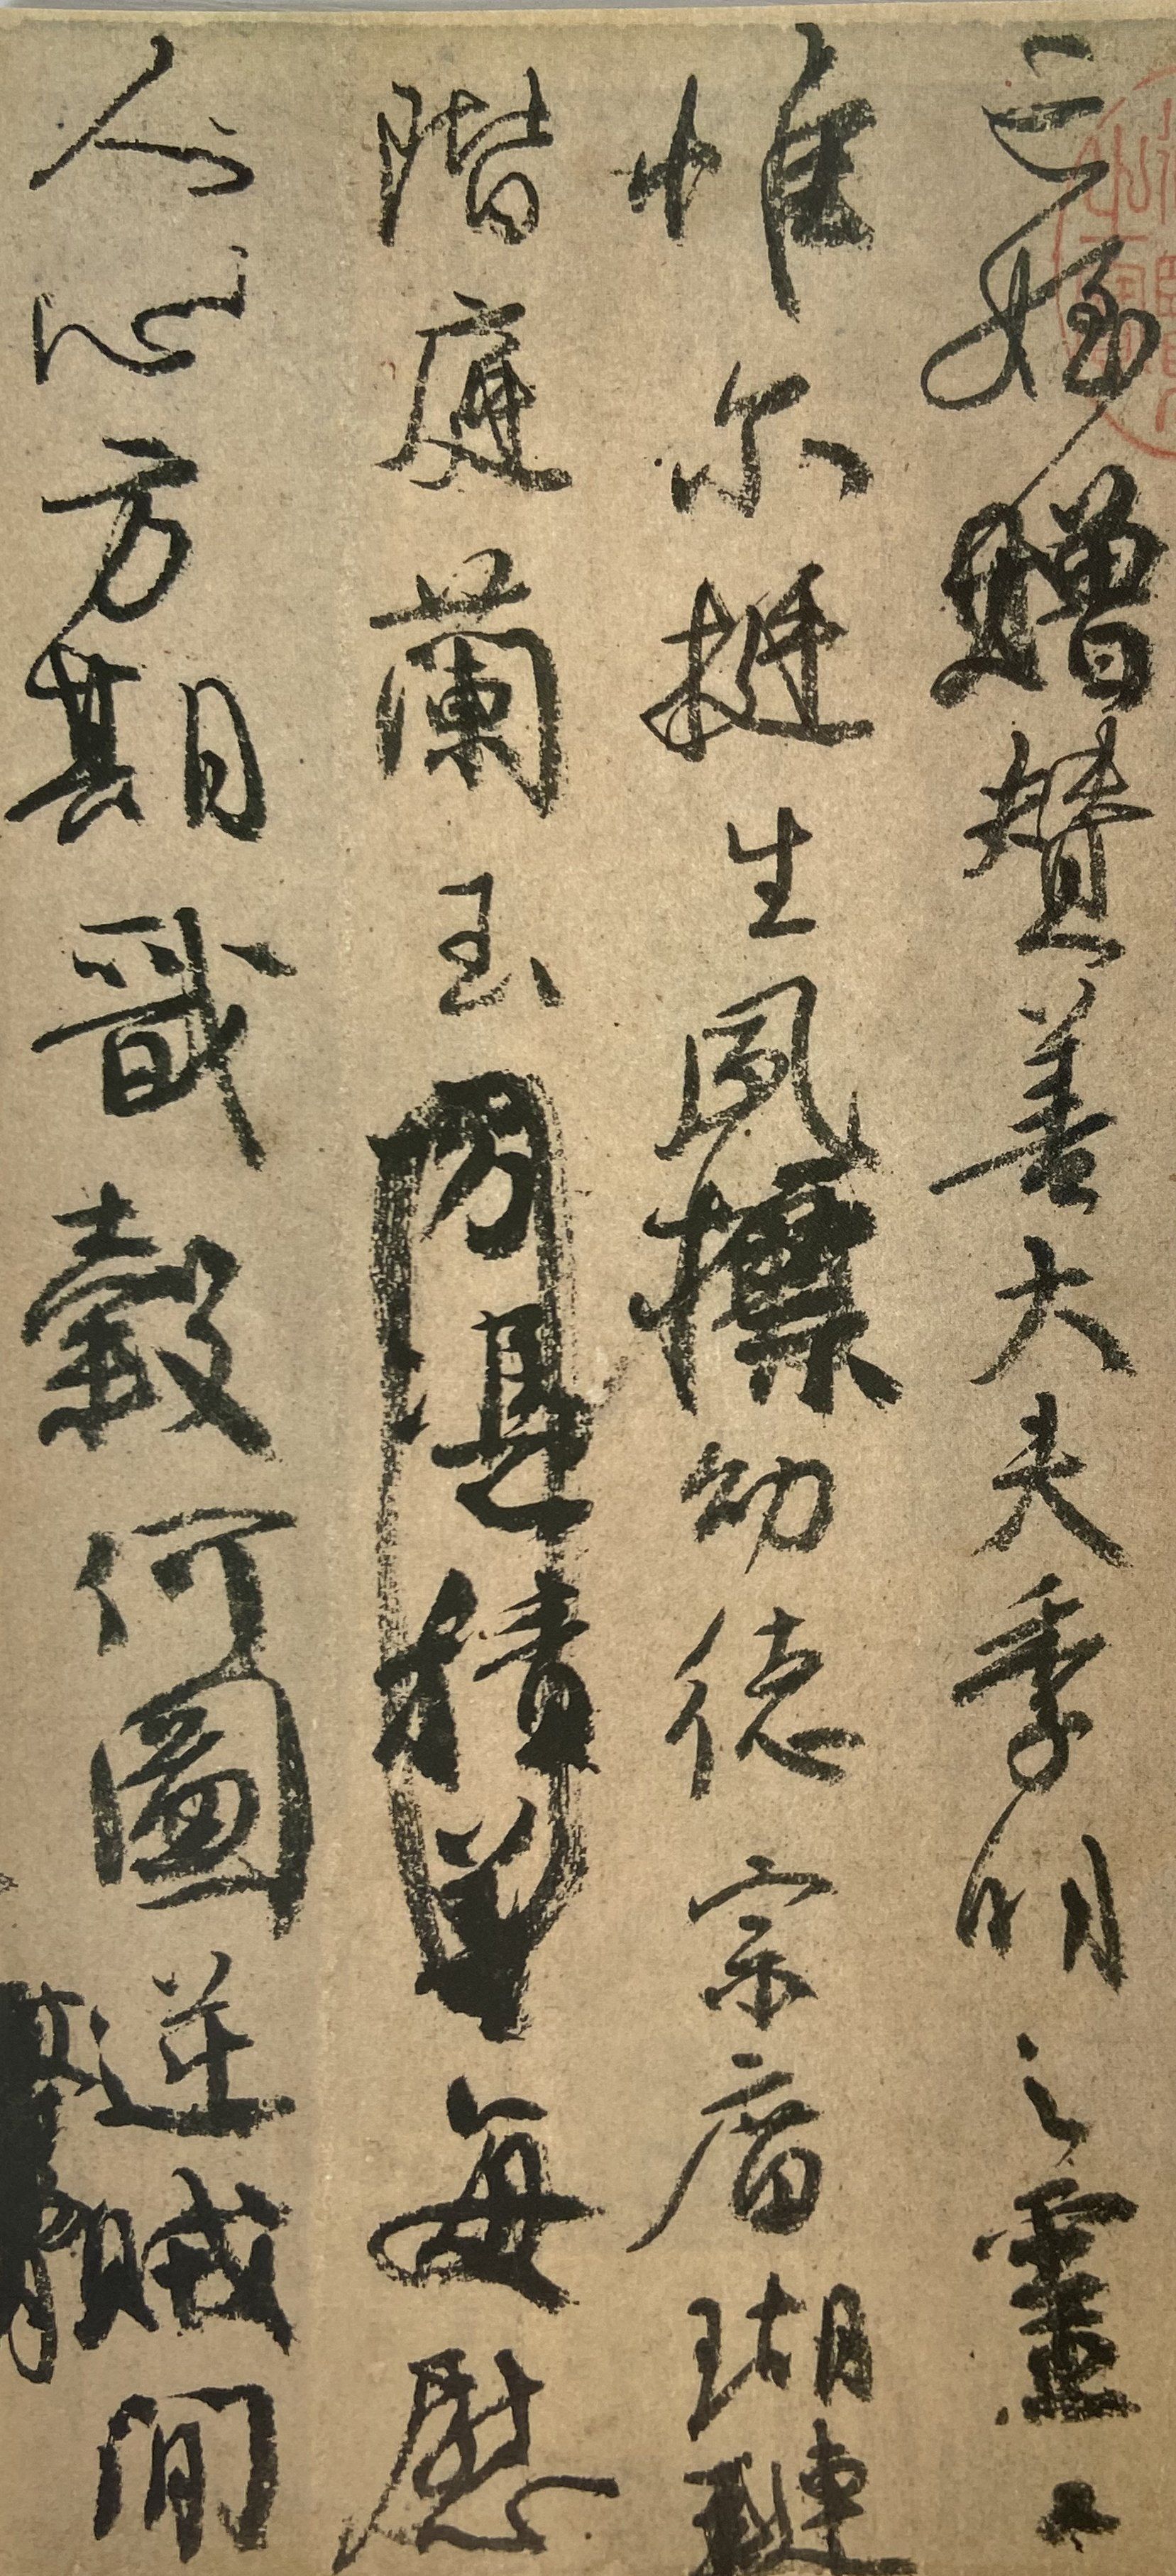 亡姪贈贊善大夫季明之靈曰
惟尔挺生夙標幼德宗庿瑚璉
階庭蘭玉方憑積善每慰
人心方期戩穀何圖逆賊閒